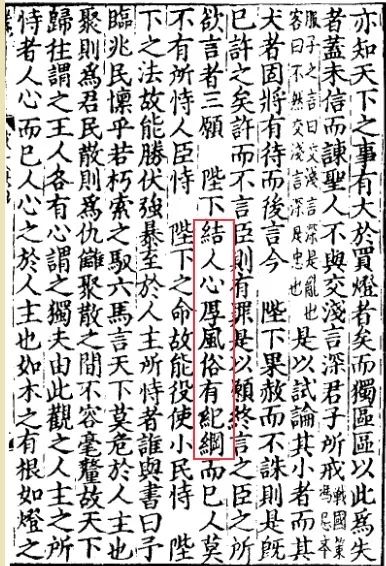 亦知天下之事有大於買燈者矣而獨區區以此為失
者蓋未信而諫聖人不與交淺言深君子所戒戰國策馮忌章
服子之言曰交淺言深是亂也
客曰不然交淺言深是忠也
是以試論其小者而其
大者固將有待而後言今　陛下果赦而不誅則是既
已許之矣許而不言臣則有罪是以願終言之臣之所
欲言者三願　陛下結人心厚風俗有紀綱而已人莫
不有所恃人臣恃　陛下之命故能役使小民恃　陛
下之法故能勝伏強暴至於人主所恃者誰與書曰予
臨兆民懍乎若朽索之馭六馬言天下莫危於人主也
聚則為君民散則為仇讎聚散之間不容毫釐故天下
歸往謂之王人各有心謂之獨夫由此觀之人主之所
恃者人心而已人心之於人主也如木之有根如燈之